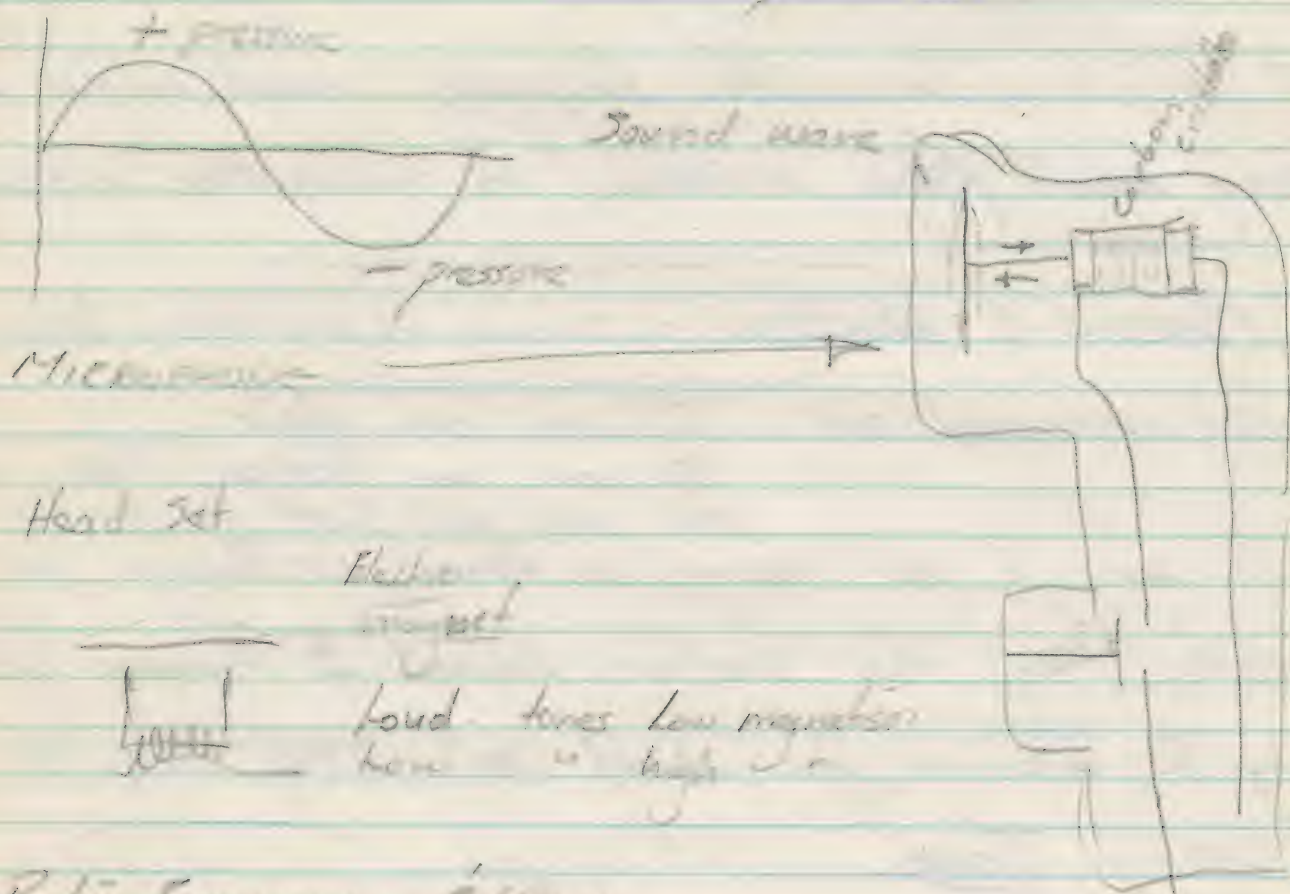 + pressure
Sound wave
- pressure
Microphone
Head Set
Electro
magnet
Loud tones Low magnetism
Low " high " "